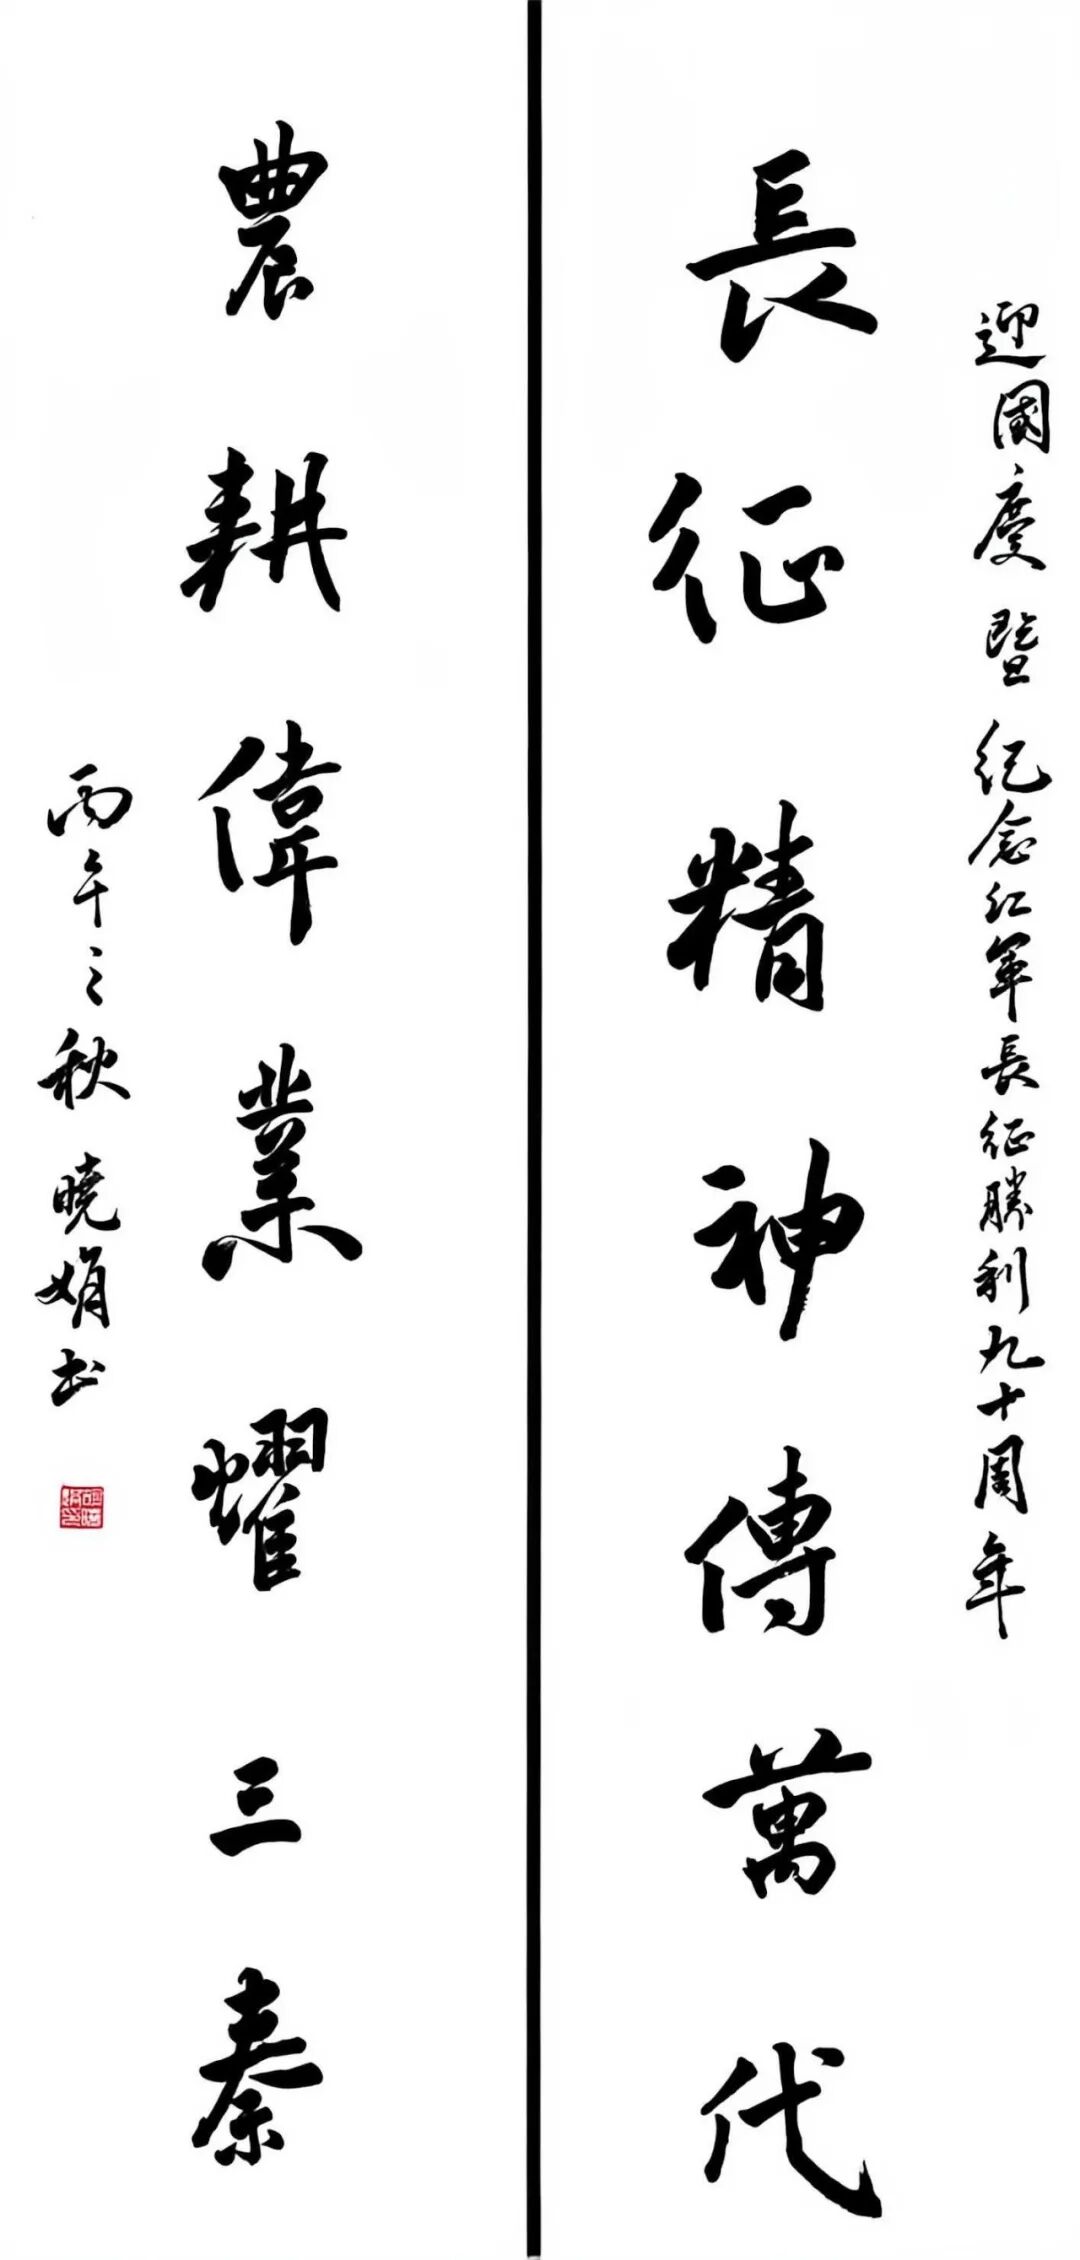 迎國慶暨纪念红軍長征勝利九十周年
長征精神傳萬代
農耕偉業耀三秦
丙午之秋曉娟书